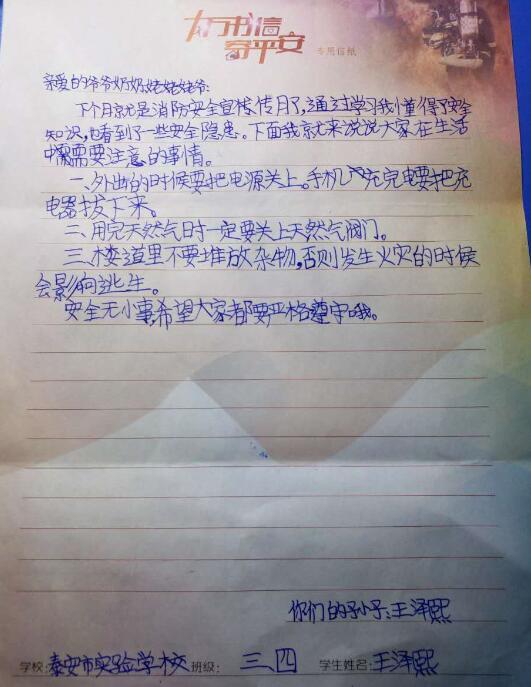 方寸书信
寄平安
专用信纸
亲爱的爷爷奶奶姥姥姥爷:
下个月就是消防安全宣传月了,通过学习我懂得了安全
知识,也看到了一些安全隐患。下面我就来说说大家在生活
中需要注意的事情。
一、外出的时候要把电源关上。手机充完电要把充
电器拔下来。
二、用完天然气时一定要关上天然气阀门。
三、楼道里不要堆放杂物,否则发生火灾的时候
会影响逃生。
安全无小事,希望大家都要严格遵守哦。
你们的孙子:王泽熙
学校:泰安市实验学校 班级: 三、四 学生姓名:王泽熙